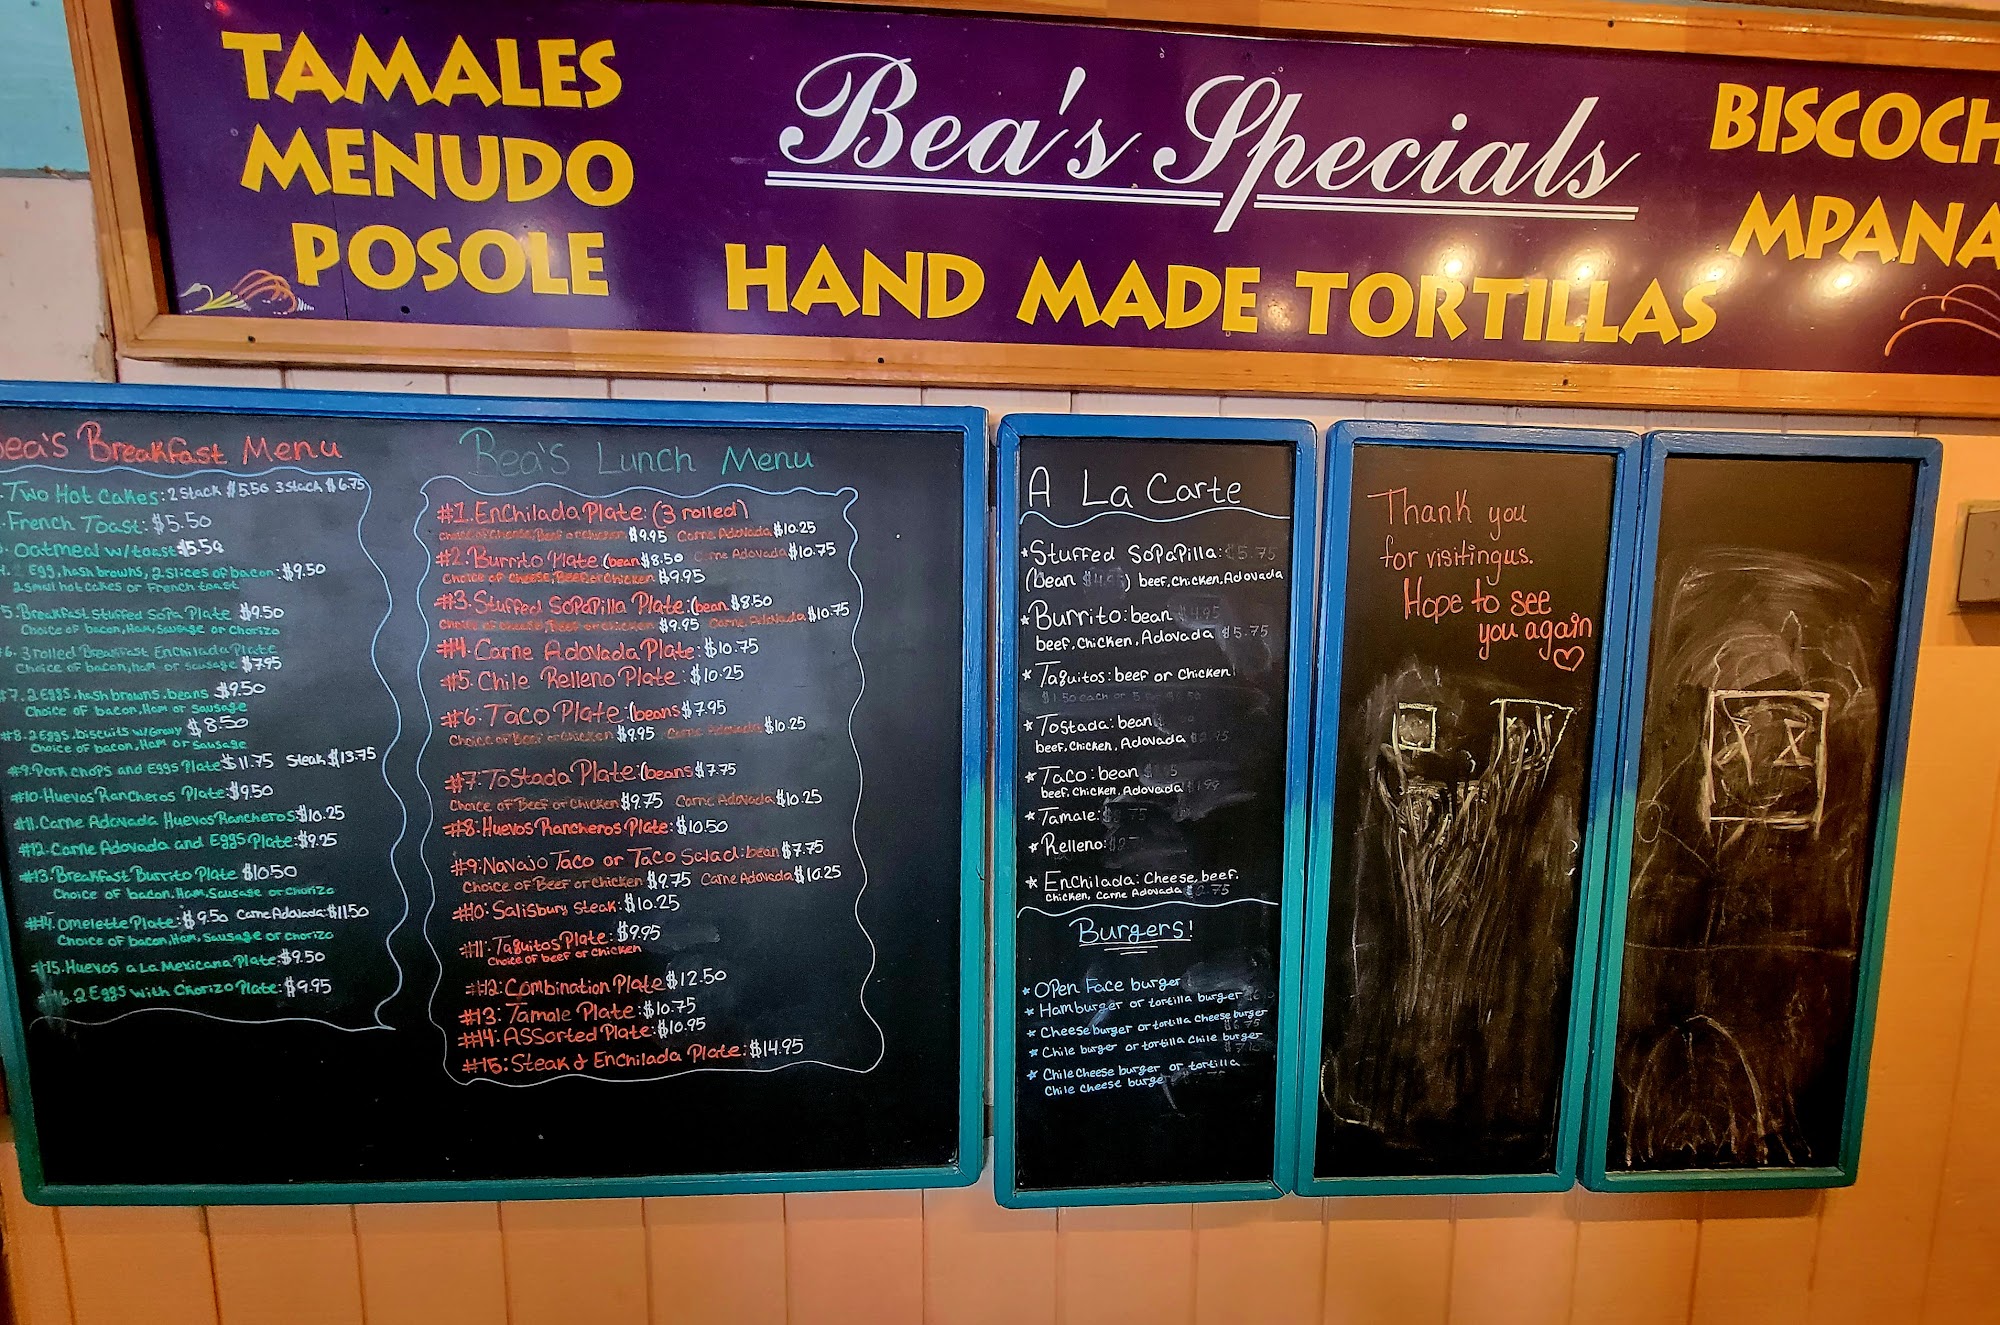 TAMALES
MENUDO
POSOLE
Bea's Specials
HAND MADE TORTILLAS
BISCOCH
MPANA
Bea's Breakfast Menu
Two Hot Cakes: 2 Stack $5.50 3 Stack $6.75
French Toast: $5.50
Oatmeal w/toast $5.50
Egg, hash browns, 2 slices of bacon: $9.50
2 small hot cakes or French toast
5. Breakfast Stuffed Sopa Plate $9.50
Choice of bacon, Ham, Sausage or Chorizo
6. 3 rolled Breakfast Enchilada Plate
Choice of bacon, ham or sausage $7.95
#7. 2 Eggs, hash browns, beans $9.50
Choice of bacon, Ham or Sausage
#8. 2 Eggs, biscuits w/Gravy $8.50
Choice of bacon, Ham or Sausage
#9. Pork chops and Eggs Plate $11.75 Steak $13.75
#10. Huevos Rancheros Plate: $9.50
#11. Carne Adovada Huevos Rancheros: $10.25
#12. Carne Adovada and Eggs Plate: $9.25
#13. Breakfast Burrito Plate $10.50
Choice of bacon, Ham, Sausage or Chorizo
#14. Omelette Plate: $9.50 Carne Adovada: $11.50
Choice of bacon, Ham, Sausage or Chorizo
#15. Huevos a La Mexicana Plate: $9.50
#16. 2 Eggs with Chorizo Plate: $9.95
Bea's Lunch Menu
#1. Enchilada Plate: (3 rolled)
Choice of Cheese, Beef or Chicken $9.95 Carne Adovada $10.25
#2. Burrito Plate: (bean $8.50 Carne Adovada $10.75
Choice of Cheese, Beef or Chicken $9.95
#3. Stuffed Sopapilla Plate: (bean $8.50
Choice of Cheese, Beef or Chicken $9.95 Carne Adovada $10.75
#4. Carne Adovada Plate: $10.75
#5. Chile Relleno Plate: $10.25
#6. Taco Plate: (beans $7.95
Choice of Beef or Chicken $9.95 Carne Adovada $10.25
#7: Tostada Plate: (beans $7.75
Choice of Beef or Chicken $9.75 Carne Adovada $10.25
#8: Huevos Rancheros Plate: $10.50
#9: Navajo Taco or Taco Salad: bean $7.75
Choice of Beef or Chicken $9.75 Carne Adovada $10.25
#10: Salisbury Steak: $10.25
#11: Taquitos Plate: $9.95
Choice of beef or Chicken
#12: Combination Plate $12.50
#13: Tamale Plate: $10.75
#14: Assorted Plate: $10.95
#15: Steak & Enchilada Plate: $14.95
A La Carte
* Stuffed Sopapilla: $5.75
(bean $4.95) beef, chicken, Adovada
* Burrito: bean $4.95
beef, Chicken, Adovada $5.75
* Taquitos: beef or Chicken
$1.50 each or 5
* Tostada: bean
beef, Chicken, Adovada
* Taco: bean
beef, Chicken, Adovada
* Tamale:
* Relleno:
* Enchilada: Cheese, beef,
Chicken, Carne Adovada
Burgers!
* Open Face burger
* Hamburger or tortilla burger
* Cheese burger or tortilla Cheese burger
$6.75
* Chile burger or tortilla Chile burger
* Chile Cheese burger or tortilla
Chile Cheese burge
Thank you
for visiting us.
Hope to see
you again